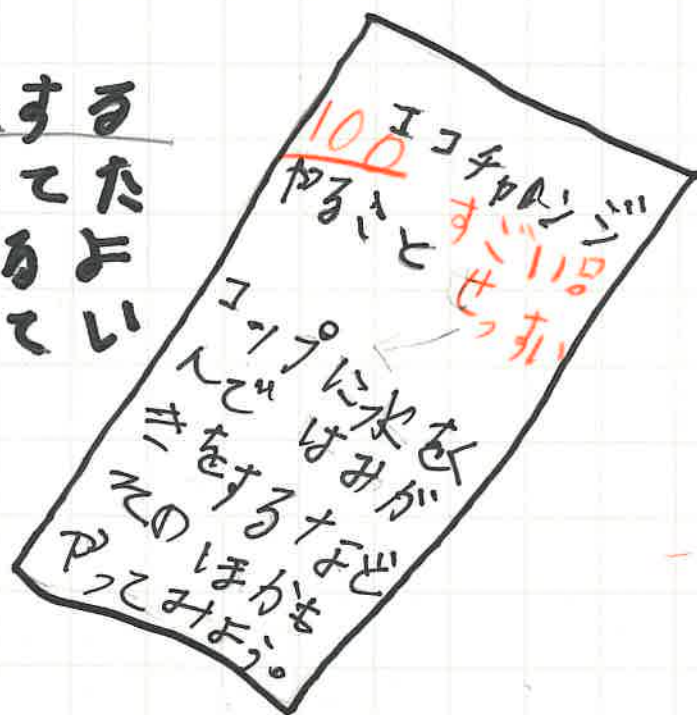 する
てた
るよ
てい
100
エコチャレンジ
やること
すごい!!
せっすい
コップに水をく
んで はみが
きをするなど
そのほかも
やってみよう。